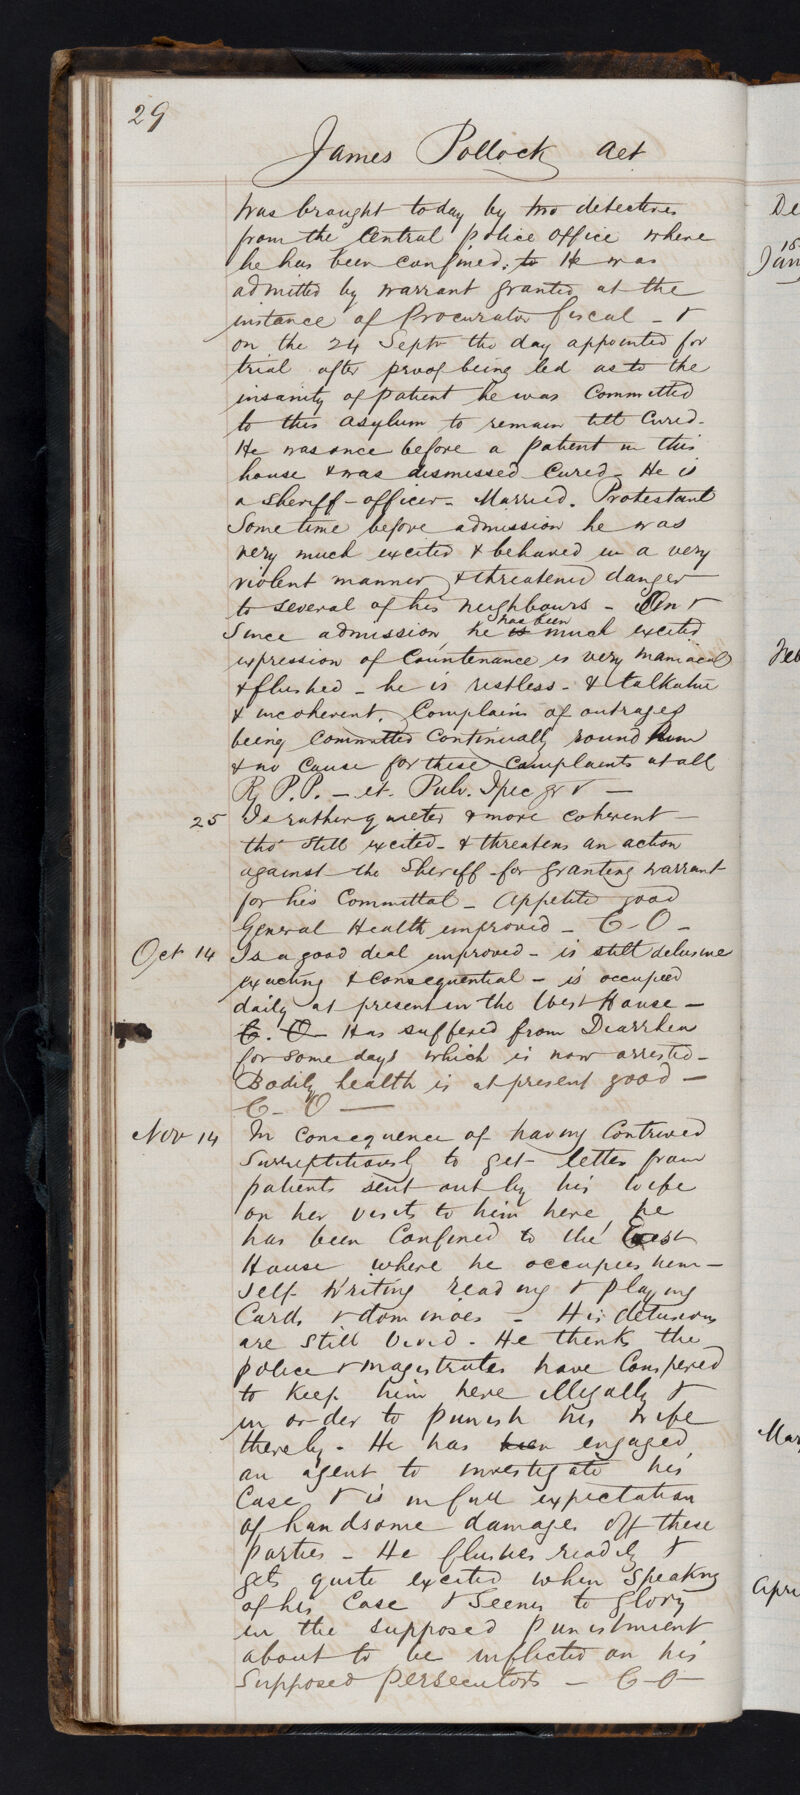 29
James Pollock aet
was brought today by two detectives
from the Central police office where
he has been confined. to He was
admitted by warrant granted at the
instance of Procurator fiscal - &
on the 24 Septr the day appointed for
trial after proof being led as to the
insanity of patient he was Committed
to this asylum to remain till Cured.
He was once before a patient in this
house & was dismissed Cured - He is
a Sheriff-officer - Married. Protestant
Some time before admission he was
very much excited & behaved in a very
violent manner & threatened danger
to several of his neighbours - On &
Since admission, he is has been much excited
expression of Countenance is very maniacal
& flushed - he is restless - & talkative
& incoherent. Complains of outrages
being Committed Continually round him
& no cause for these Complaints at all
R P.P. - et. Pulv. Ipec gr V -
25 Is rather quieter & more coherent -
tho' still excited - & threatens an action
against the Sheriff - for granting warrant
for his Committal - Appetite good
General Health improved - C-O-
Oct 14 Is a good deal improved - is still delusive
exacting & consequential - is occupied
daily at present in the West House -
C. O Has suffered from Diarrhea
for some days which is now arrested -
Bodily health is at present good -
C- O -
Nov 14 In Consequence of having Contrived
Surreptitiously to get letters from
patients sent out by his wife
on her visits to him here, he
has been Confined to the East
House where he occupies him-
self Writing reading & playing
Cards & dominoes - His delusions
are still vivid - He thinks the
police & magistrates have Conspired
to keep him here illegally &
in order to punish his wife
thereby - He has been engaged
an agent to investigate his
Case & is in full expectation
of handsome damages off these
parties - He flushes readily &
gets quite excited when speaking
of his Case & seems to glory
in the supposed punishment
about to be inflicted on his
Supposed persecutors - C-O-
De
15
Jan
Feb
Mar
Apri